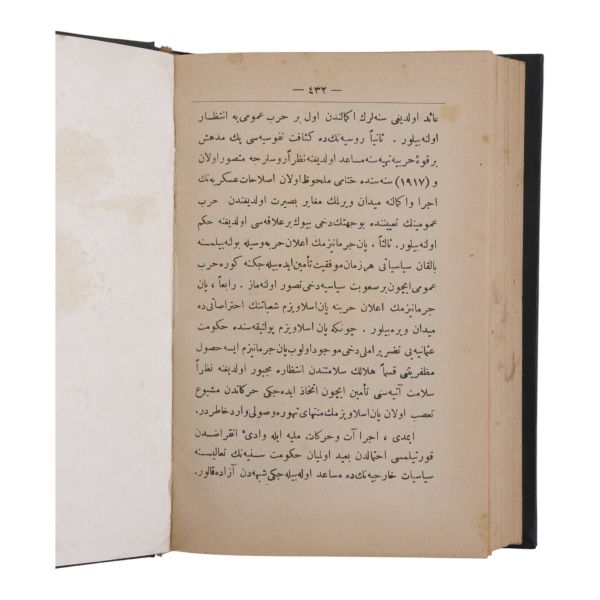 — ٤٣٢ —
عائد اولدیغی سنه‌لرك اكمالندن اول بر حرب عمومی‌یه انتظار
اولنه‌بیلور . ثانیاً روسیه‌نك‌ده كثافت نفوسیه‌سی پك مدهش
برقوهٔ حربیه‌تهیه‌سنه مساعد اولدیغنه نظراً روسلرجه متصور اولان
و (۱۹۱۷) سنه‌سنده ختامی ملحوظ اولان اصلاحات عسكریه‌نك
اجرا و اكمالنه میدان ویرلمك مغایر بصیرت اولدیغندن حرب
عمومینك تعییننده بوجهتك دخی بیوك برعلاقه‌سی اولدیغنه حكم
اولنه‌بیلور. ثالثاً ، پان‌جرمانیزمك اعلان حربه‌وسیله بولنه‌بیلمسنه
بالقان سیاسیاتی هرزمان موفقیت تأمین ایده‌بیله‌جكنه كوره حرب
عمومی ایچون برصعوبت سیاسیه دخی تصور اولنه‌ماز . رابعاً ، پان
جرمانیزمك اعلان حربنه پان‌اسلاویزم شعباتنك احتراصاتی‌ده
میدان ویره‌بیلور . چونكه پان‌اسلاویزم پولتیقه‌سنده حكومت
عثمانیه‌یی تضریر املی دخی موجود اولوب‌پان‌جرمانیزم ایسه حصول
مظفریتی قسماً هلالك سلامتندن انتظاره مجبور اولدیغنه نظراً
سلامت آتیه‌سنی تأمین ایچون اتخاذ ایده‌جكی حركاتدن مشبوع
تعصب اولان پان‌اسلاویزمك منتهای تهوره وصولی وارد خاطردر.
ایمدی ، اجراآت وحركات ملیه ایله وادیٔ انقراضدن
قورتیلمسی احتمالدن بعید اولمیان حكومت سنیه‌نك تعالیسنه
سیاسیات خارجیه‌نك‌ده مساعد اوله‌بیله‌جكی شبهه‌دن آزاده‌قالور.